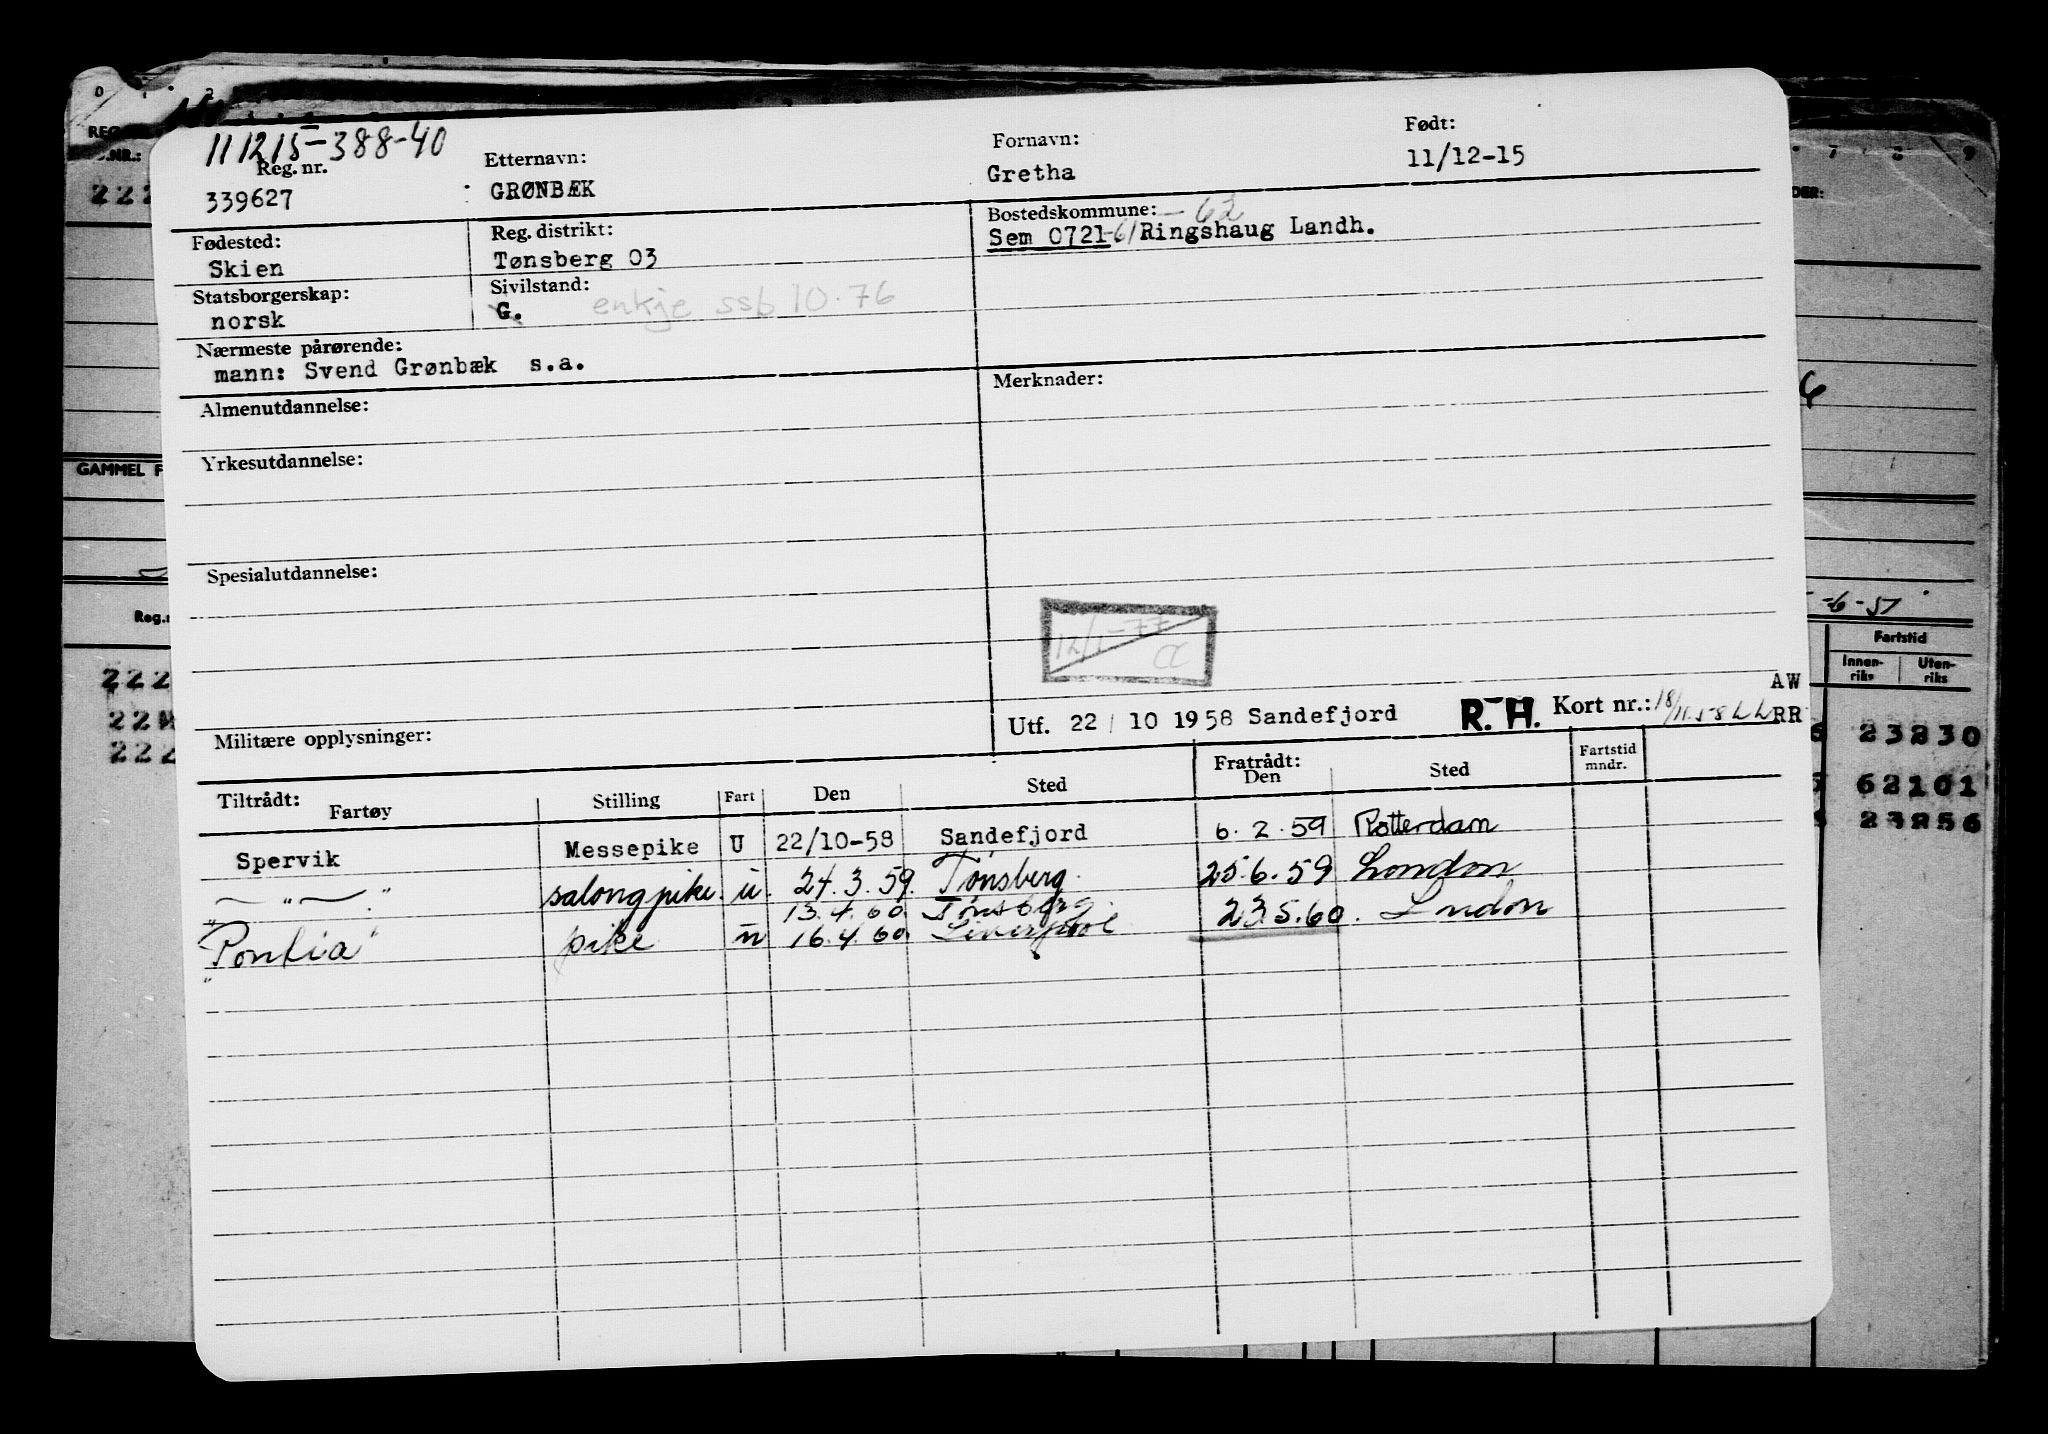 111215-388-40
Reg. nr. Etternavn: Fornavn: Født:
339627 GRØNBÆK Gretha 11/12-15
Fødested: Reg. distrikt: Bostedskommune: - 62
Skien Tønsberg 03 Sem 0721-61 Ringshaug Landh.
Statsborgerskap: Sivilstand:
norsk G. enkje ssb 10.76
Nærmeste pårørende:
mann: Svend Grønbæk s.a.
Almenutdannelse: Merknader:
Yrkesutdannelse:
Spesialutdannelse:
12/1-77
Militære opplysninger:
AW
Utf. 22/10 1958 Sandefjord R.H. Kort nr.: 18/11.58 LL RR
Tiltrådt: Fratrådt:
Fartøy Stilling Fart Den Sted Den Sted Fartstid mndr.
Spervik Messepike U 22/10-58 Sandefjord 6.2.59 Rotterdam
" salongpike. u. 24.3.59. Tønsberg. 25.6.59 London
13.4.60. Tønsberg
"Pontia" pike u 16.4.60. Liverpool 23.5.60. London
GAMMEL F
Reg.
222
222
-6-51
Fartstid
Innen-riks Uten-riks
23230
62101
23256